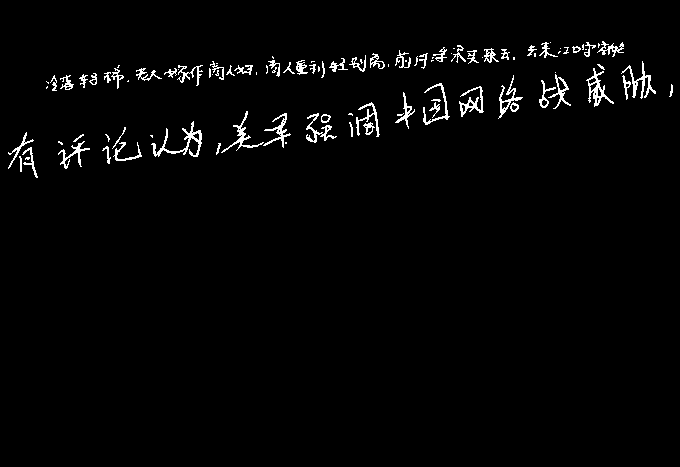 冷落车马稀,老大嫁作商人妇,商人重利轻别离,前月浮梁买茶去,去来江口守空船
有评论认为,美军强调中国网络战威胁,